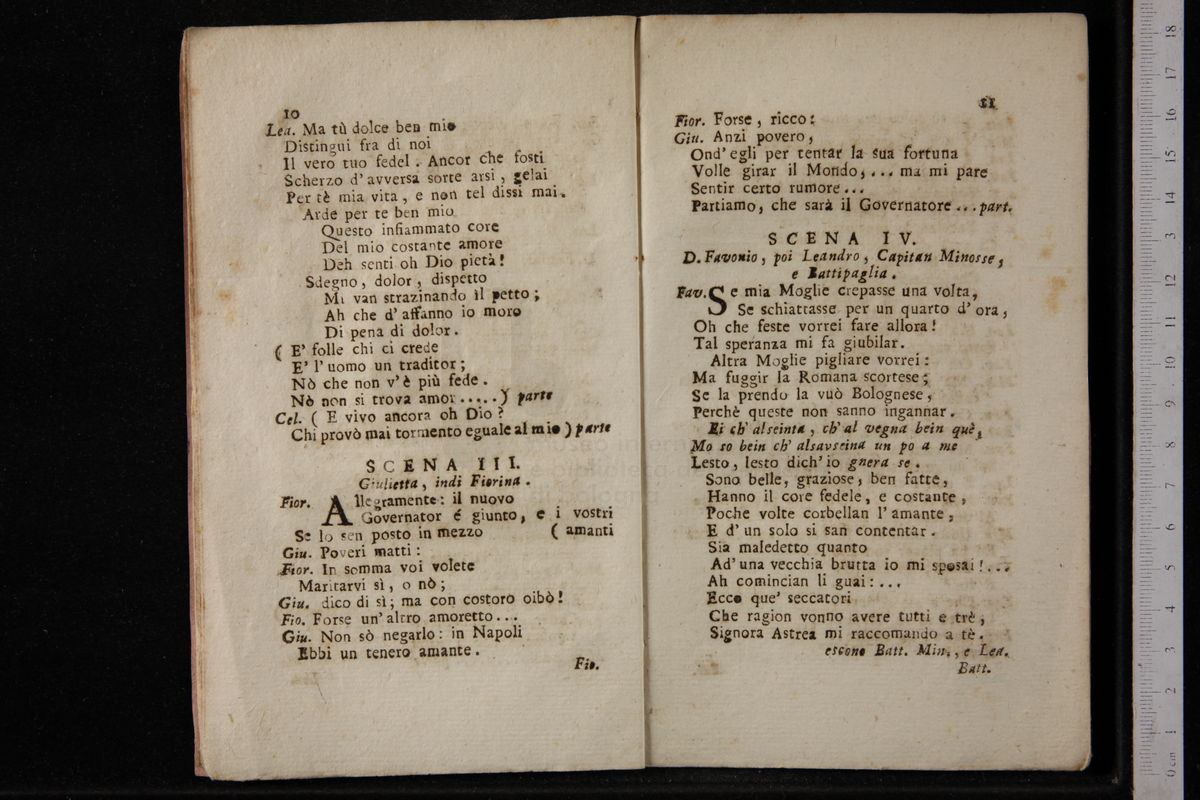 10
Lea. Ma tù dolce ben mio
Distingui fra di noi
Il vero tuo fedel. Ancor che fosti
Scherzo d'avversa sorte arsi, gelai
Per tè mia vita, e non tel dissi mai.
Arde per te ben mio
Questo infiammato core
Del mio costante amore
Deh senti oh Dio pietà!
Sdegno, dolor, dispetto
Mi van strazinando il petto;
Ah che d'affanno io moro
Di pena di dolor.
( E' folle chi ci crede
E' l'uomo un traditor;
Nò che non v'è più fede.
Nò non si trova amor.....) parte
Cel. ( E vivo ancora oh Dio?
Chi provò mai tormento eguale al mio) parte
SCENA III.
Giulietta, indi Fiorina.
Fior. Allegramente: il nuovo
Governator é giunto, e i vostri
Se lo sen posto in mezzo ( amanti
Giu. Poveri matti:
Fior. In somma voi volete
Maritarvi sì, o nò;
Giu. dico di sì; ma con costoro oibò!
Fio. Forse un'altro amoretto...
Giu. Non sò negarlo: in Napoli
Ebbi un tenero amante.
Fio.
11
Fior. Forse, ricco:
Giu. Anzi povero,
Ond'egli per tentar la sua fortuna
Volle girar il Mondo,... ma mi pare
Sentir certo rumore...
Partiamo, che sarà il Governatore...part.
SCENA IV.
D. Favonio, poi Leandro, Capitan Minosse,
e Battipaglia.
Fav. Se mia Moglie crepasse una volta,
Se schiattasse per un quarto d'ora,
Oh che feste vorrei fare allora!
Tal speranza mi fa giubilar.
Altra Moglie pigliare vorrei:
Ma fuggir la Romana scortese;
Se la prendo la vuò Bolognese,
Perchè queste non sanno ingannar.
Ei ch'alseinta, ch'al vegna bein què,
Mo so bein ch'alsavseina un po a me
Lesto, lesto dich'io gnera se.
Sono belle, graziose, ben fatte,
Hanno il core fedele, e costante,
Poche volte corbellan l'amante,
E d'un solo si san contentar.
Sia maledetto quanto
Ad'una vecchia brutta io mi sposai!...
Ah comincian li guai:...
Ecco que' seccatori
Che ragion vonno avere tutti e trè,
Signora Astrea mi raccomando a tè.
escono Batt. Min., e Lea.
Batt.